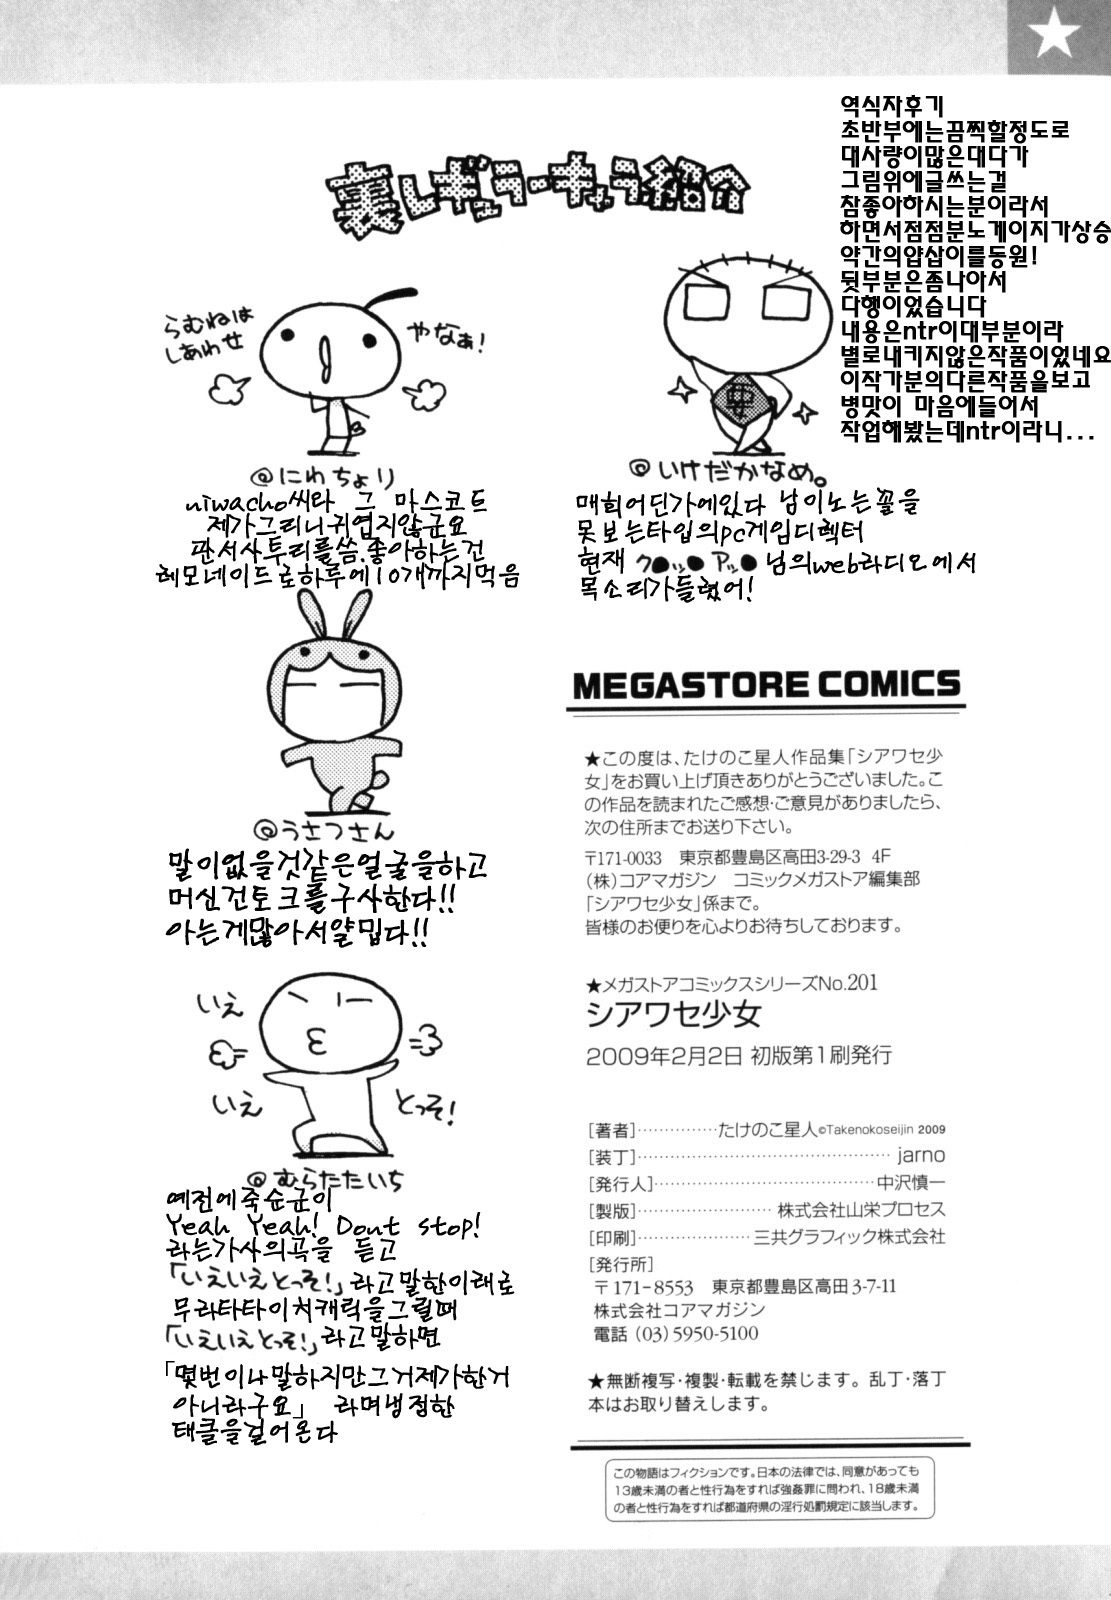 裏レギュラーキャラ紹介
역식자후기
초반부에는끔찍할정도로
대사량이많은대다가
그림위에글쓰는걸
참좋아하시는분이라서
하면서점점분노게이지가상승
약간의얍삽이를동원!
뒷부분은좀나아서
다행이었습니다
내용은ntr이대부분이라
별로내키지않은작품이었네요
이작가분의다른작품을보고
병맛이 마음에들어서
작업해봤는데ntr이라니...
らむねは
しあわせ
やなぁ!
@にわちょり
niwacho씨라 그 마스코트
제가그리니귀엽지않군요
판서사투리를씀.좋아하는건
레모네이드로하루에10개까지먹음
@いけだかなめ。
매회어딘가에있다 남이노는꽃을
못보는타입의pc게임디렉터
현재 ク●ッ● アッ● 님의web라디오에서
목소리가들렸어!
@うさつさん
말이없을것같은얼굴을하고
머신건토크를구사한다!!
아는게많아서얄밉다!!
いえ
いえ
とっそ!
@むらたたいち
예전에죽순군이
Yeah Yeah! Dont stop!
라는가사의곡을 듣고
「いえいえとっそ!」라고말한이래로
무라타타이치캐릭을그릴때
「いえいえとっそ!」라고말하면
「몇번이나말하지만그거제가한거
아니라구요」 라며냉정한
태클을걸어온다
MEGASTORE COMICS
★この度は、たけのこ星人作品集「シアワセ少
女」をお買い上げ頂きありがとうございました。こ
の作品を読まれたご感想・ご意見がありましたら、
次の住所までお送り下さい。
〒171-0033 東京都豊島区高田3-29-3 4F
(株)コアマガジン コミックメガストア編集部
「シアワセ少女」係まで。
皆様のお便りを心よりお待ちしております。
★メガストアコミックスシリーズNo.201
シアワセ少女
2009年2月2日 初版第1刷発行
[著者]……………たけのこ星人©Takenokoseijin 2009
[装丁]……………………………………… jarno
[発行人]…………………………………中沢慎一
[製版]……………………… 株式会社山栄プロセス
[印刷]………………… 三共グラフィック株式会社
[発行所]
〒171-8553 東京都豊島区高田3-7-11
株式会社コアマガジン
電話 (03)5950-5100
★無断複写・複製・転載を禁じます。乱丁・落丁
本はお取り替えします。
この物語はフィクションです。日本の法律では、同意があっても
13歳未満の者と性行為をすれば強姦罪に問われ、18歳未満
の者と性行為をすれば都道府県の淫行処罰規定に該当します。